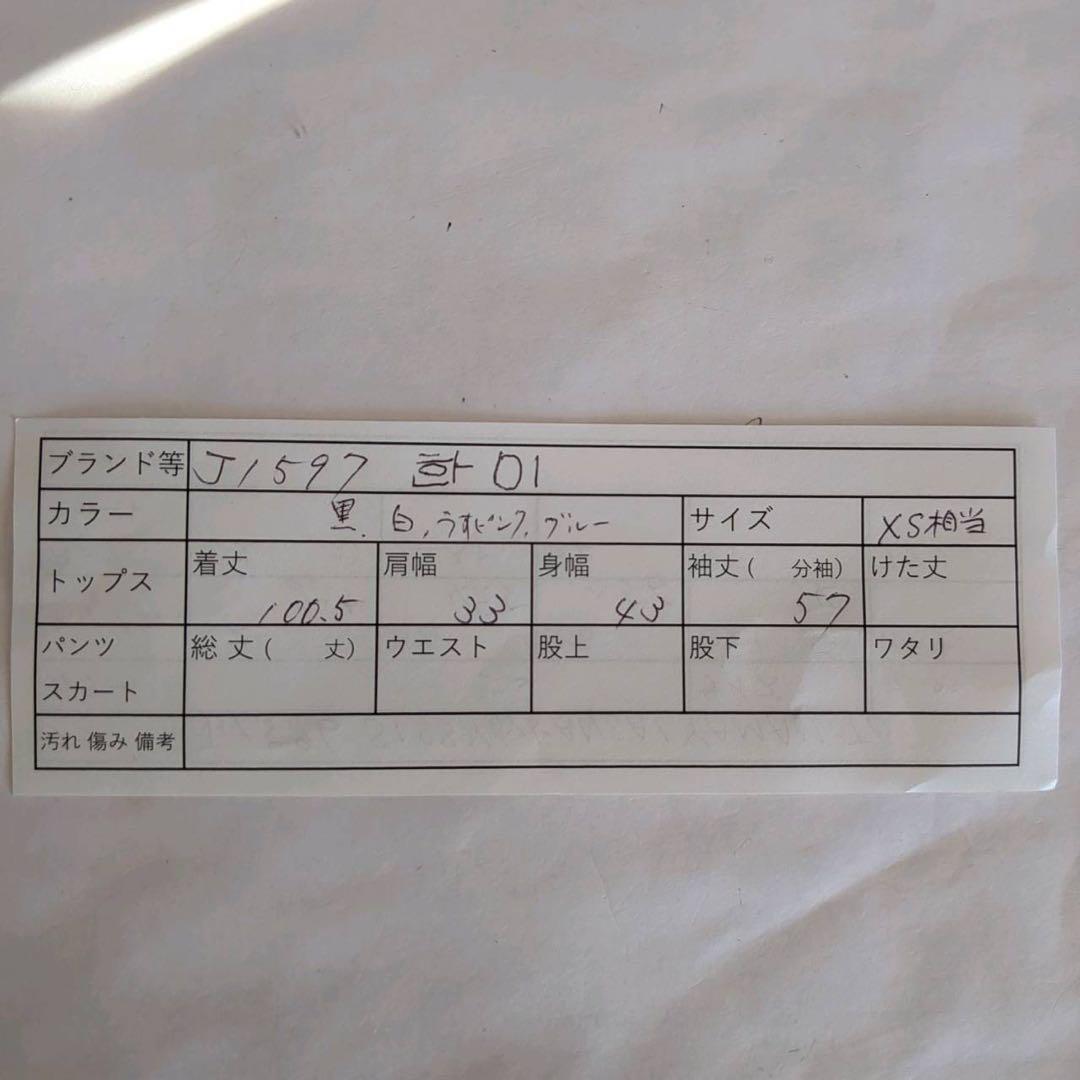 ブランド等 J1597 화이
カラー 黒、白、うすピンク、ブルー サイズ XS相当
トップス 着丈 100.5 肩幅 33 身幅 43 袖丈( 分袖) 57 けた丈
パンツ スカート 総丈( 丈) ウエスト 股上 股下 ワタリ
汚れ 傷み 備考